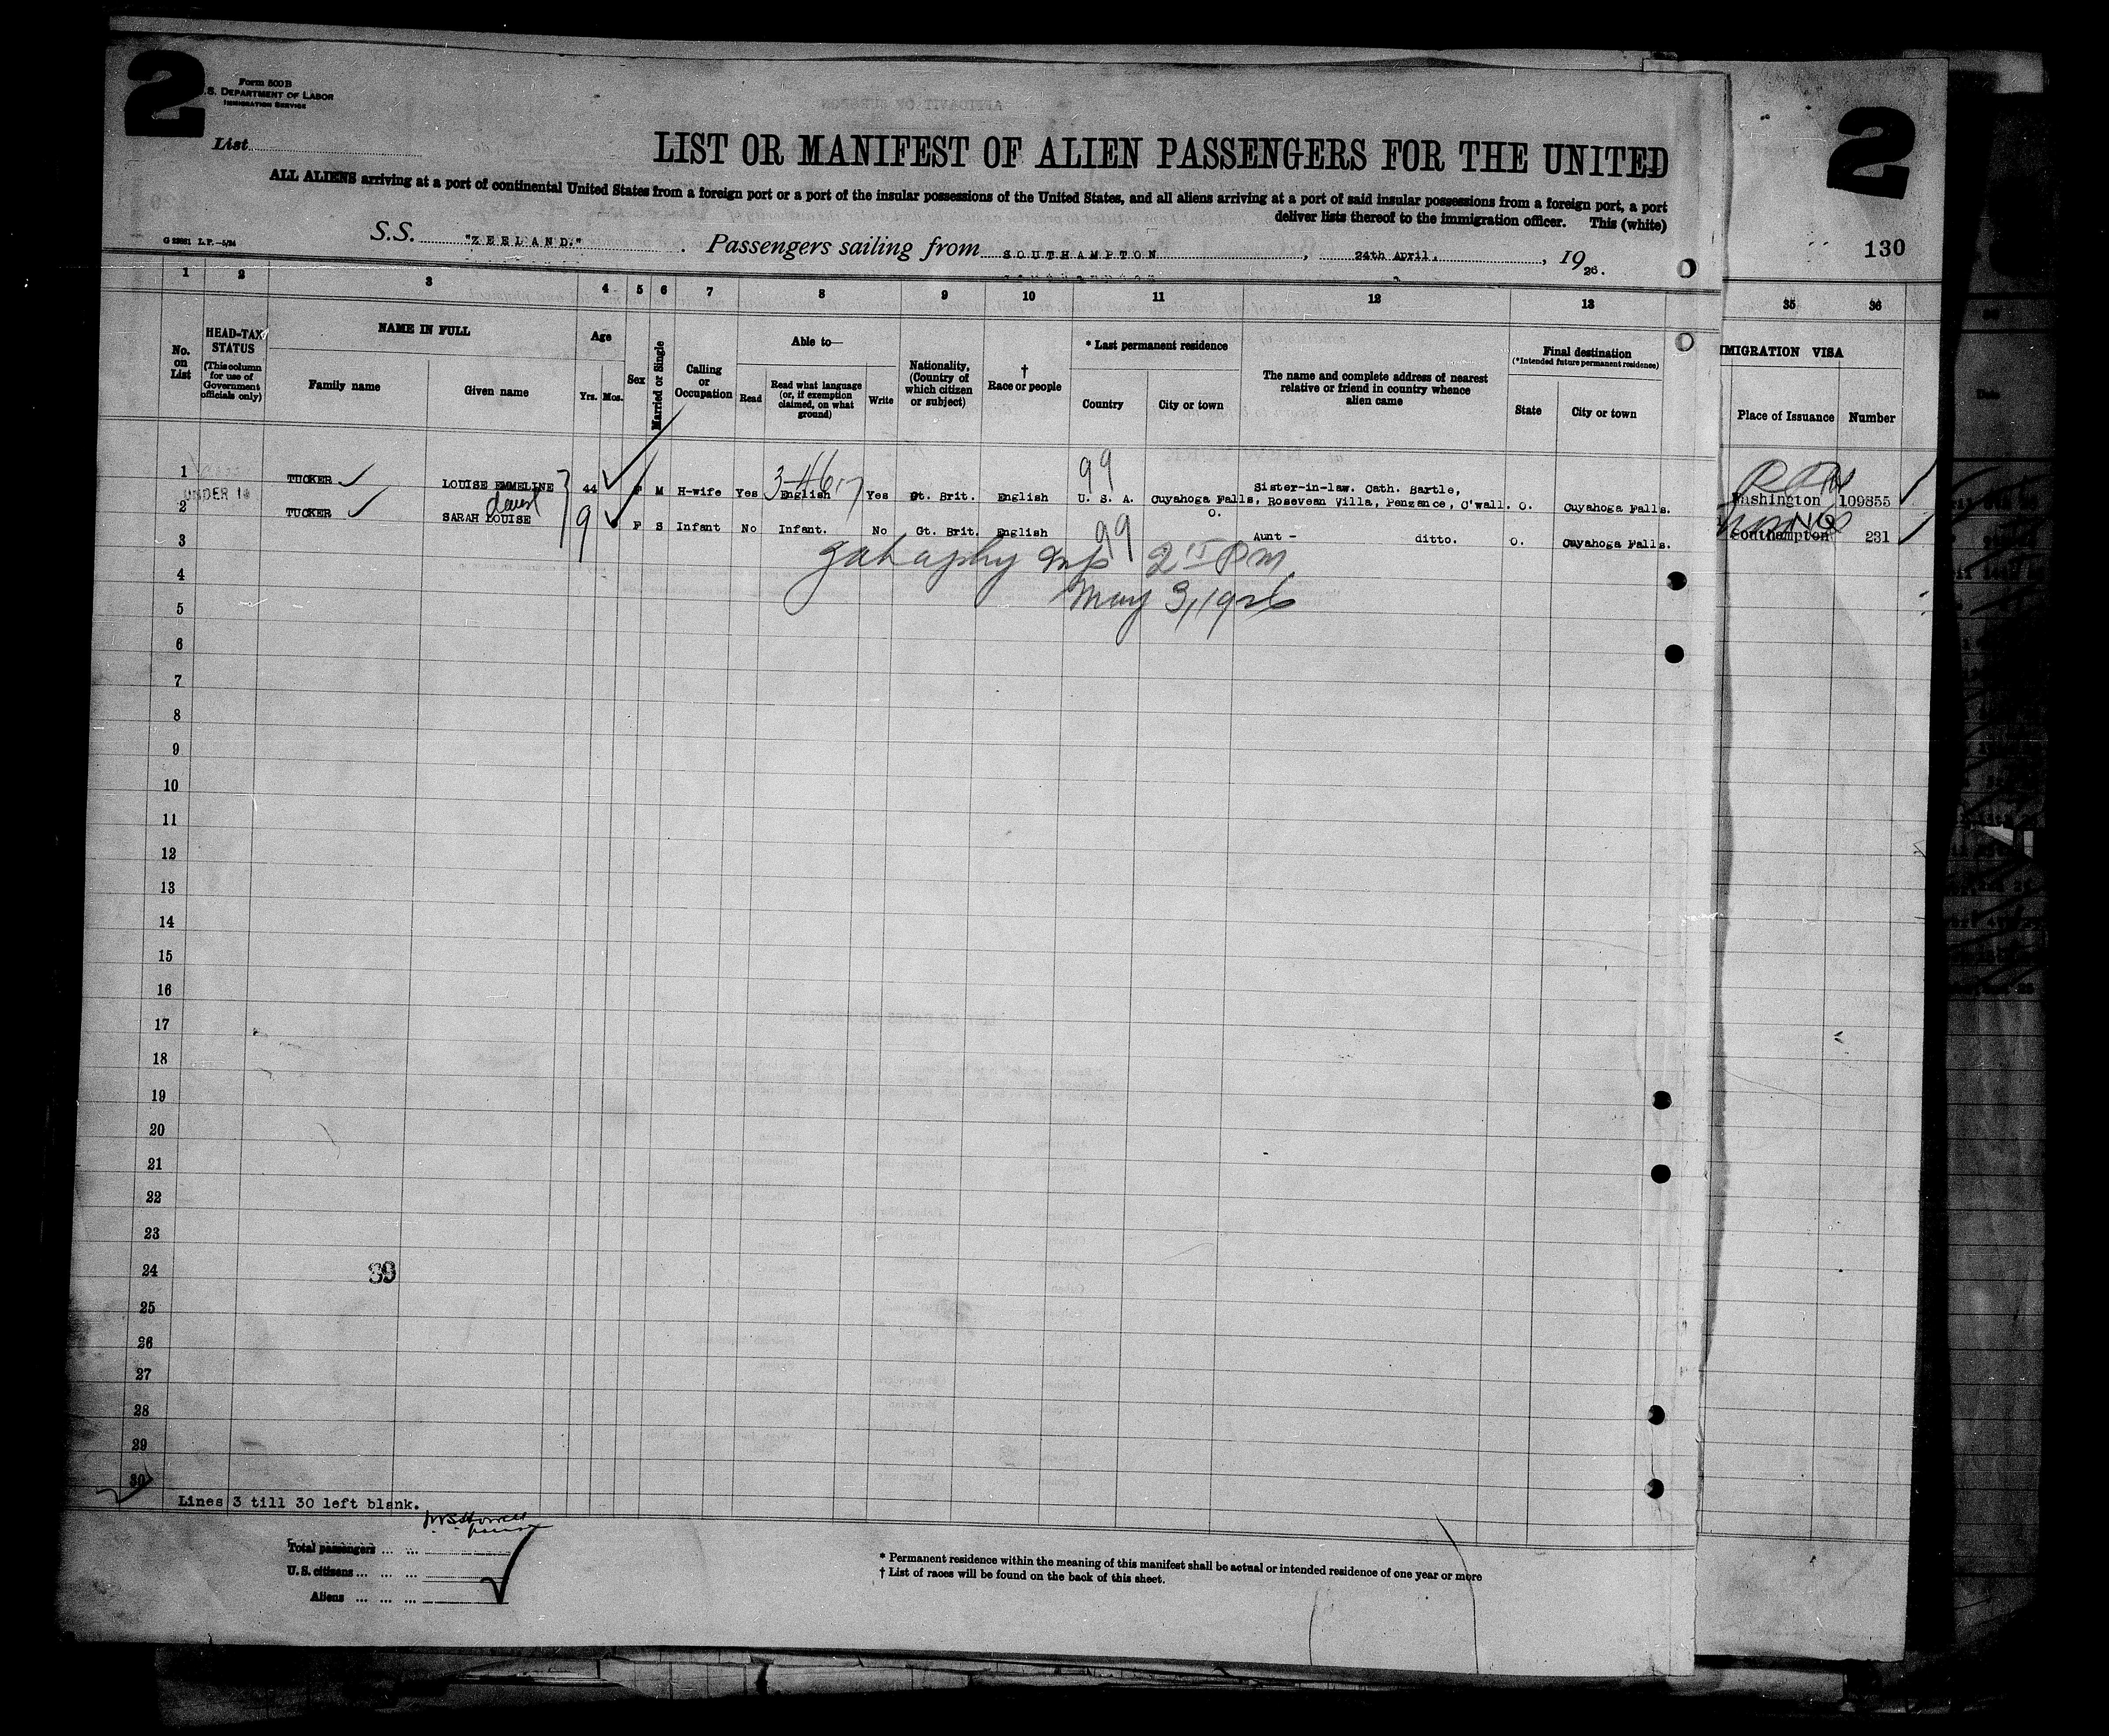 2
Form 500B
U.S. DEPARTMENT OF LABOR
IMMIGRATION SERVICE
List
LIST OR MANIFEST OF ALIEN PASSENGERS FOR THE UNITED
ALL ALIENS arriving at a port of continental United States from a foreign port or a port of the insular possessions of the United States, and all aliens arriving at a port of said insular possessions from a foreign port, a port
deliver lists thereof to the immigration officer. This (white)
S.S. "ZEELAND." Passengers sailing from SOUTHAMPTON, 24th April, 1926.
2
130
1 2 3 4 5 6 7 8 9 10 11 12 13 35 36
No. on List
HEAD-TAX STATUS
(This column for use of Government officials only)
NAME IN FULL
Family name
Given name
Age
Yrs. Mos.
Sex
Married or Single
Calling or Occupation
Able to—
Read
Read what language (or, if exemption claimed, on what ground)
Write
Nationality, (Country of which citizen or subject)
† Race or people
* Last permanent residence
Country
City or town
The name and complete address of nearest relative or friend in country whence alien came
Final destination
(*Intended future permanent residence)
State
City or town
IMMIGRATION VISA
Place of Issuance
Number
1 TUCKER LOUISE EMMELINE 44 F M H-wife Yes English Yes Gt. Brit. English U. S. A. Cuyahoga Falls, O. Sister-in-law. Cath. Bartle, Rosevean Villa, Penzance, C'wall. O. Cuyahoga Falls. Washington 109855
99
UNDER 16
2 TUCKER SARAH LOUISE 9 F S Infant No Infant. No Gt. Brit. English 99 Aunt - ditto. O. Cuyahoga Falls. Southampton 231
3
2 15 PM
4
May 3, 1926
5
6
7
8
9
10
11
12
13
14
15
16
17
18
19
20
21
22
23
24
39
25
26
27
28
29
30
Lines 3 till 30 left blank.
Total passengers ... ...
U. S. citizens ... ... ...
Aliens ... ... ...
* Permanent residence within the meaning of this manifest shall be actual or intended residence of one year or more
† List of races will be found on the back of this sheet.
G 23861 L.P.—5/24